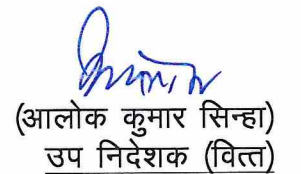 (आलोक कुमार सिन्हा)
उप निदेशक (वित्त)